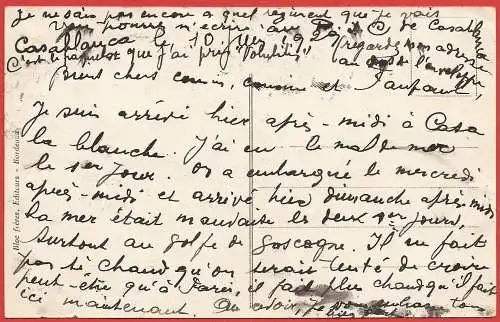 Je ne sais pas encore a quel regiment que je vais
Vous pouvez m'ecrire au D.I.O de Casablanca
Casablanca le, 10 1929 regarde mon adresse
C'est le paquebot que j'ai pris "Volubilis" au dos de l'enveloppe
bient chers cousin, cousine et
Je suis arrivé hier après-midi à Casa
la blanche. J'ai eu le mal de mer
le 1er jour. On a embarqué le mercredi
après-midi et arrivé hier dimanche après-midi
La mer était mauvaise les deux 1er jours,
surtout au golfe de Gascogne. Il ne fait
pas si chaud qu'on serait tenté de croire
peut-être qu'à Paris, il fait plus chaud qu'il fait
ici maintenant. Au revoir, je vous embrasse tous
bien fort
Bloc frères, Editeurs - Bordeaux